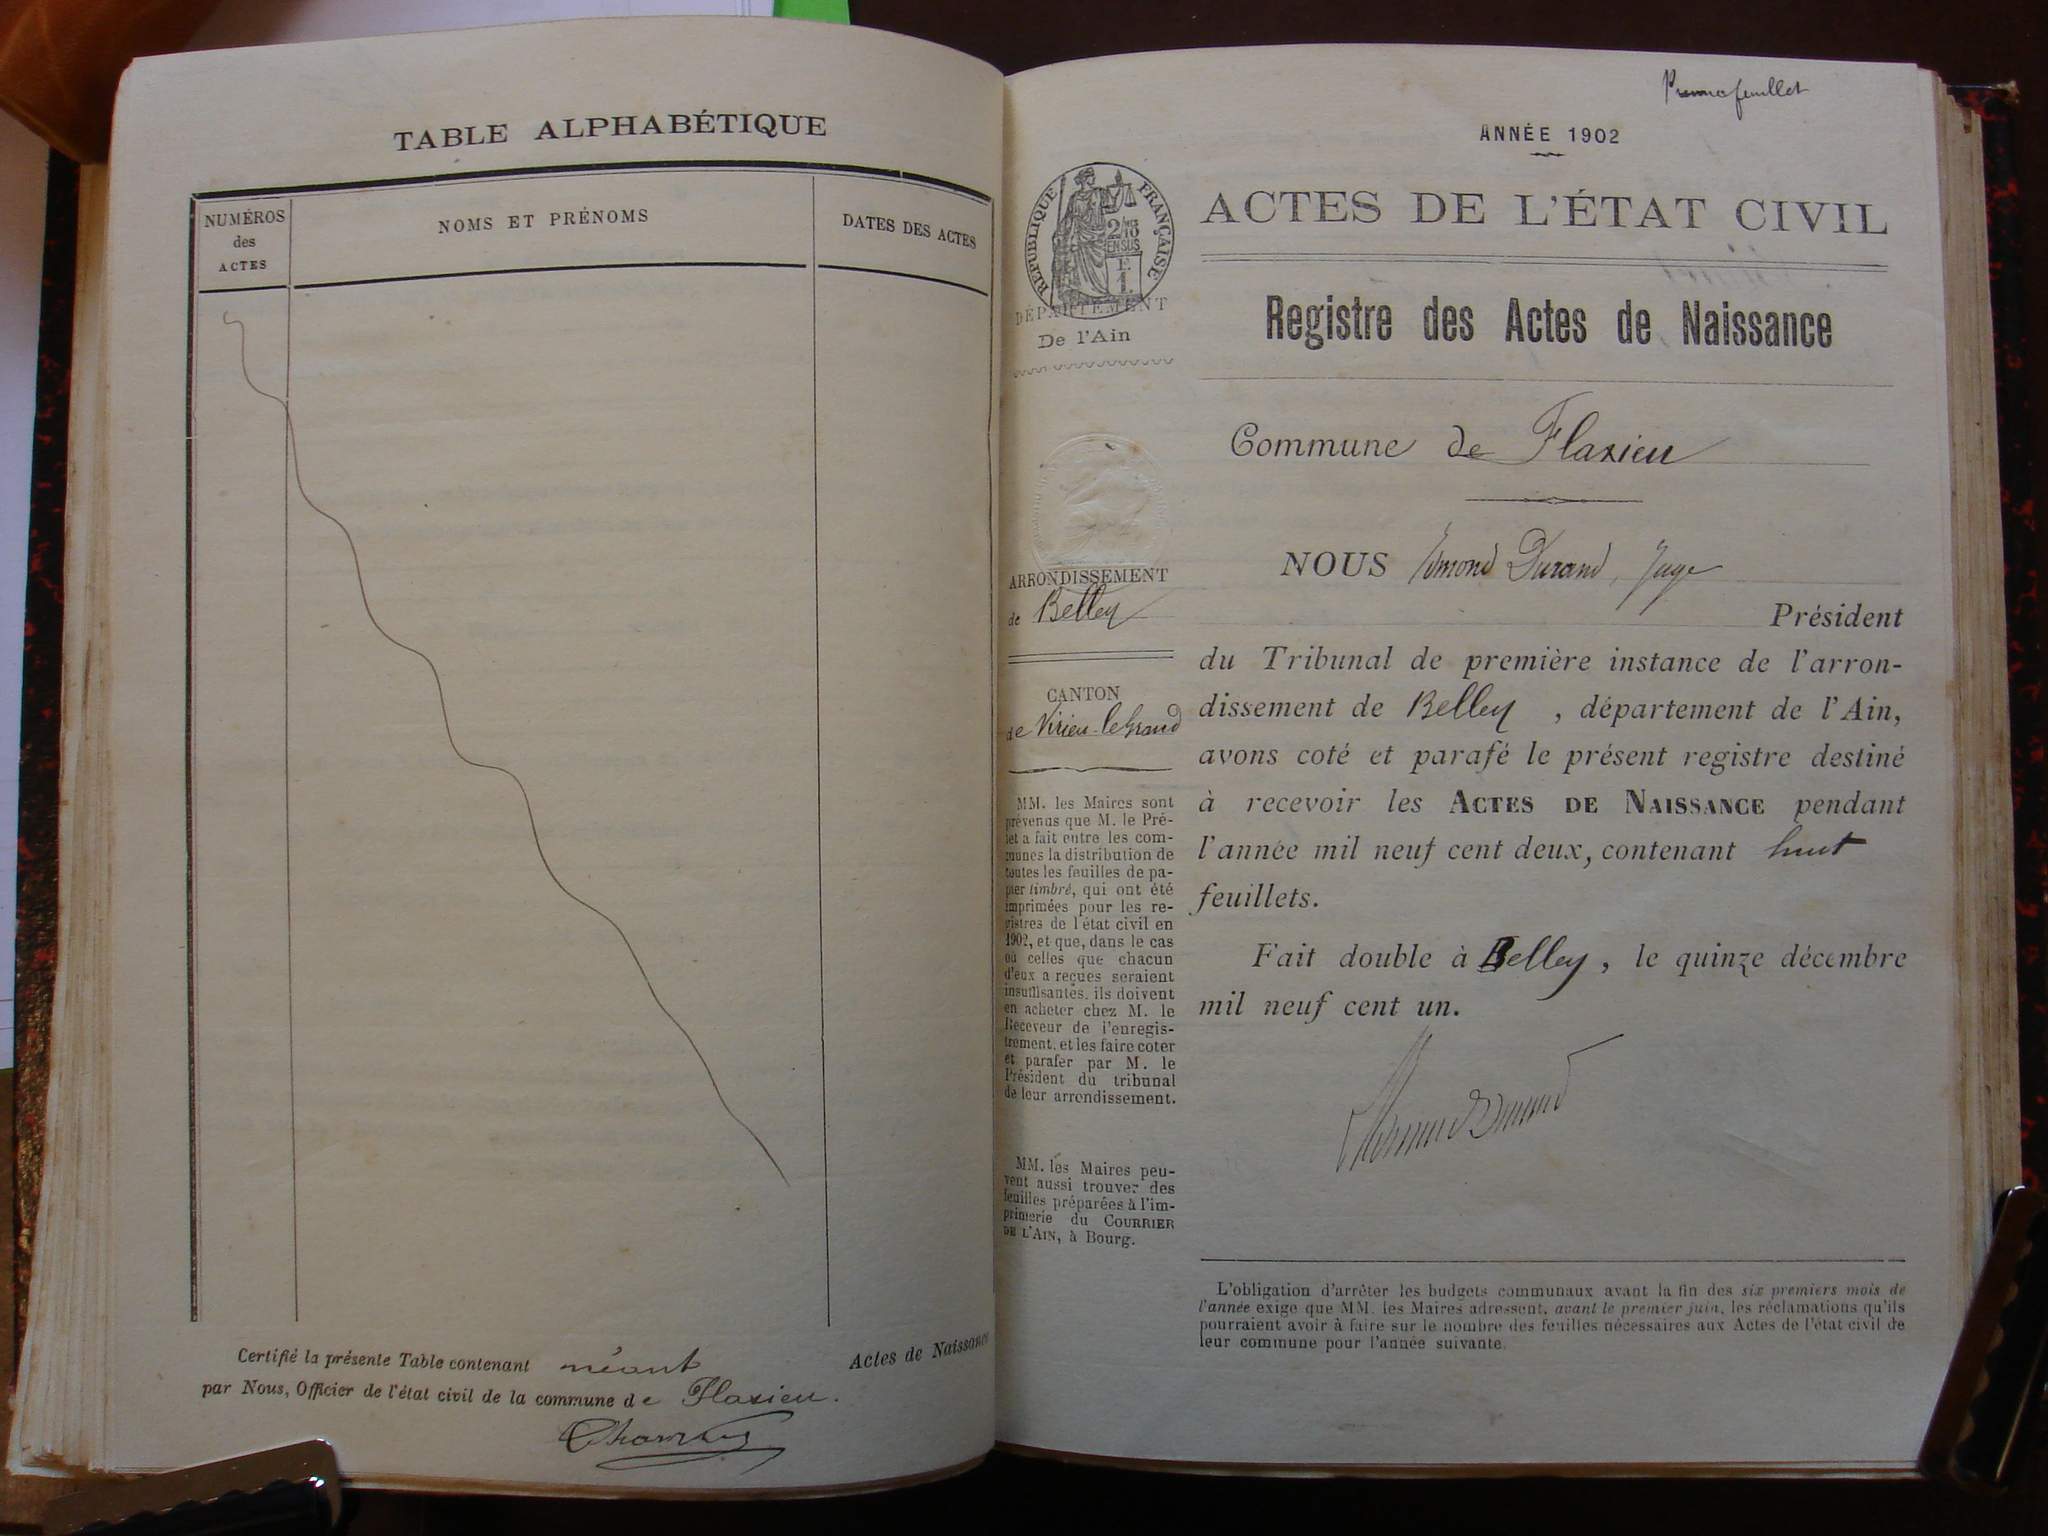 TABLE ALPHABÉTIQUE
NUMÉROS
des
ACTES
NOMS ET PRÉNOMS
DATES DES ACTES
Certifié la présente Table contenant néant
par Nous, Officier de l'état civil de la commune de Flaxieu.
Actes de Naissance
feuillet
ANNÉE 1902
RÉPUBLIQUE FRANÇAISE
2/10
EN SUS
F.
1.
DÉPARTEMENT
De l'Ain
ARRONDISSEMENT
de Belley
CANTON
de Virieu-le Grand
MM. les Maires sont
prévenus que M. le Pré-
fet a fait entre les com-
munes la distribution de
toutes les feuilles de pa-
pier timbré, qui ont été
imprimées pour les re-
gistres de l'état civil en
1902, et que, dans le cas
où celles que chacun
d'eux a reçues seraient
insuffisantes, ils doivent
en acheter chez M. le
Receveur de l'enregis-
trement, et les faire coter
et parafer par M. le
Président du tribunal
de leur arrondissement.
MM. les Maires peu-
vent aussi trouver des
feuilles préparées à l'im-
primerie du COURRIER
DE L'AIN, à Bourg.
ACTES DE L'ÉTAT CIVIL
Registre des Actes de Naissance
Commune de Flaxieu
NOUS Edmond Durand, Juge
Président
du Tribunal de première instance de l'arron-
dissement de Belley, département de l'Ain,
avons coté et parafé le présent registre destiné
à recevoir les ACTES DE NAISSANCE pendant
l'année mil neuf cent deux, contenant huit
feuillets.
Fait double à Belley, le quinze décembre
mil neuf cent un.
L'obligation d'arrêter les budgets communaux avant la fin des six premiers mois de
l'année exige que MM. les Maires adressent, avant le premier juin, les réclamations qu'ils
pourraient avoir à faire sur le nombre des feuilles nécessaires aux Actes de l'état civil de
leur commune pour l'année suivante.